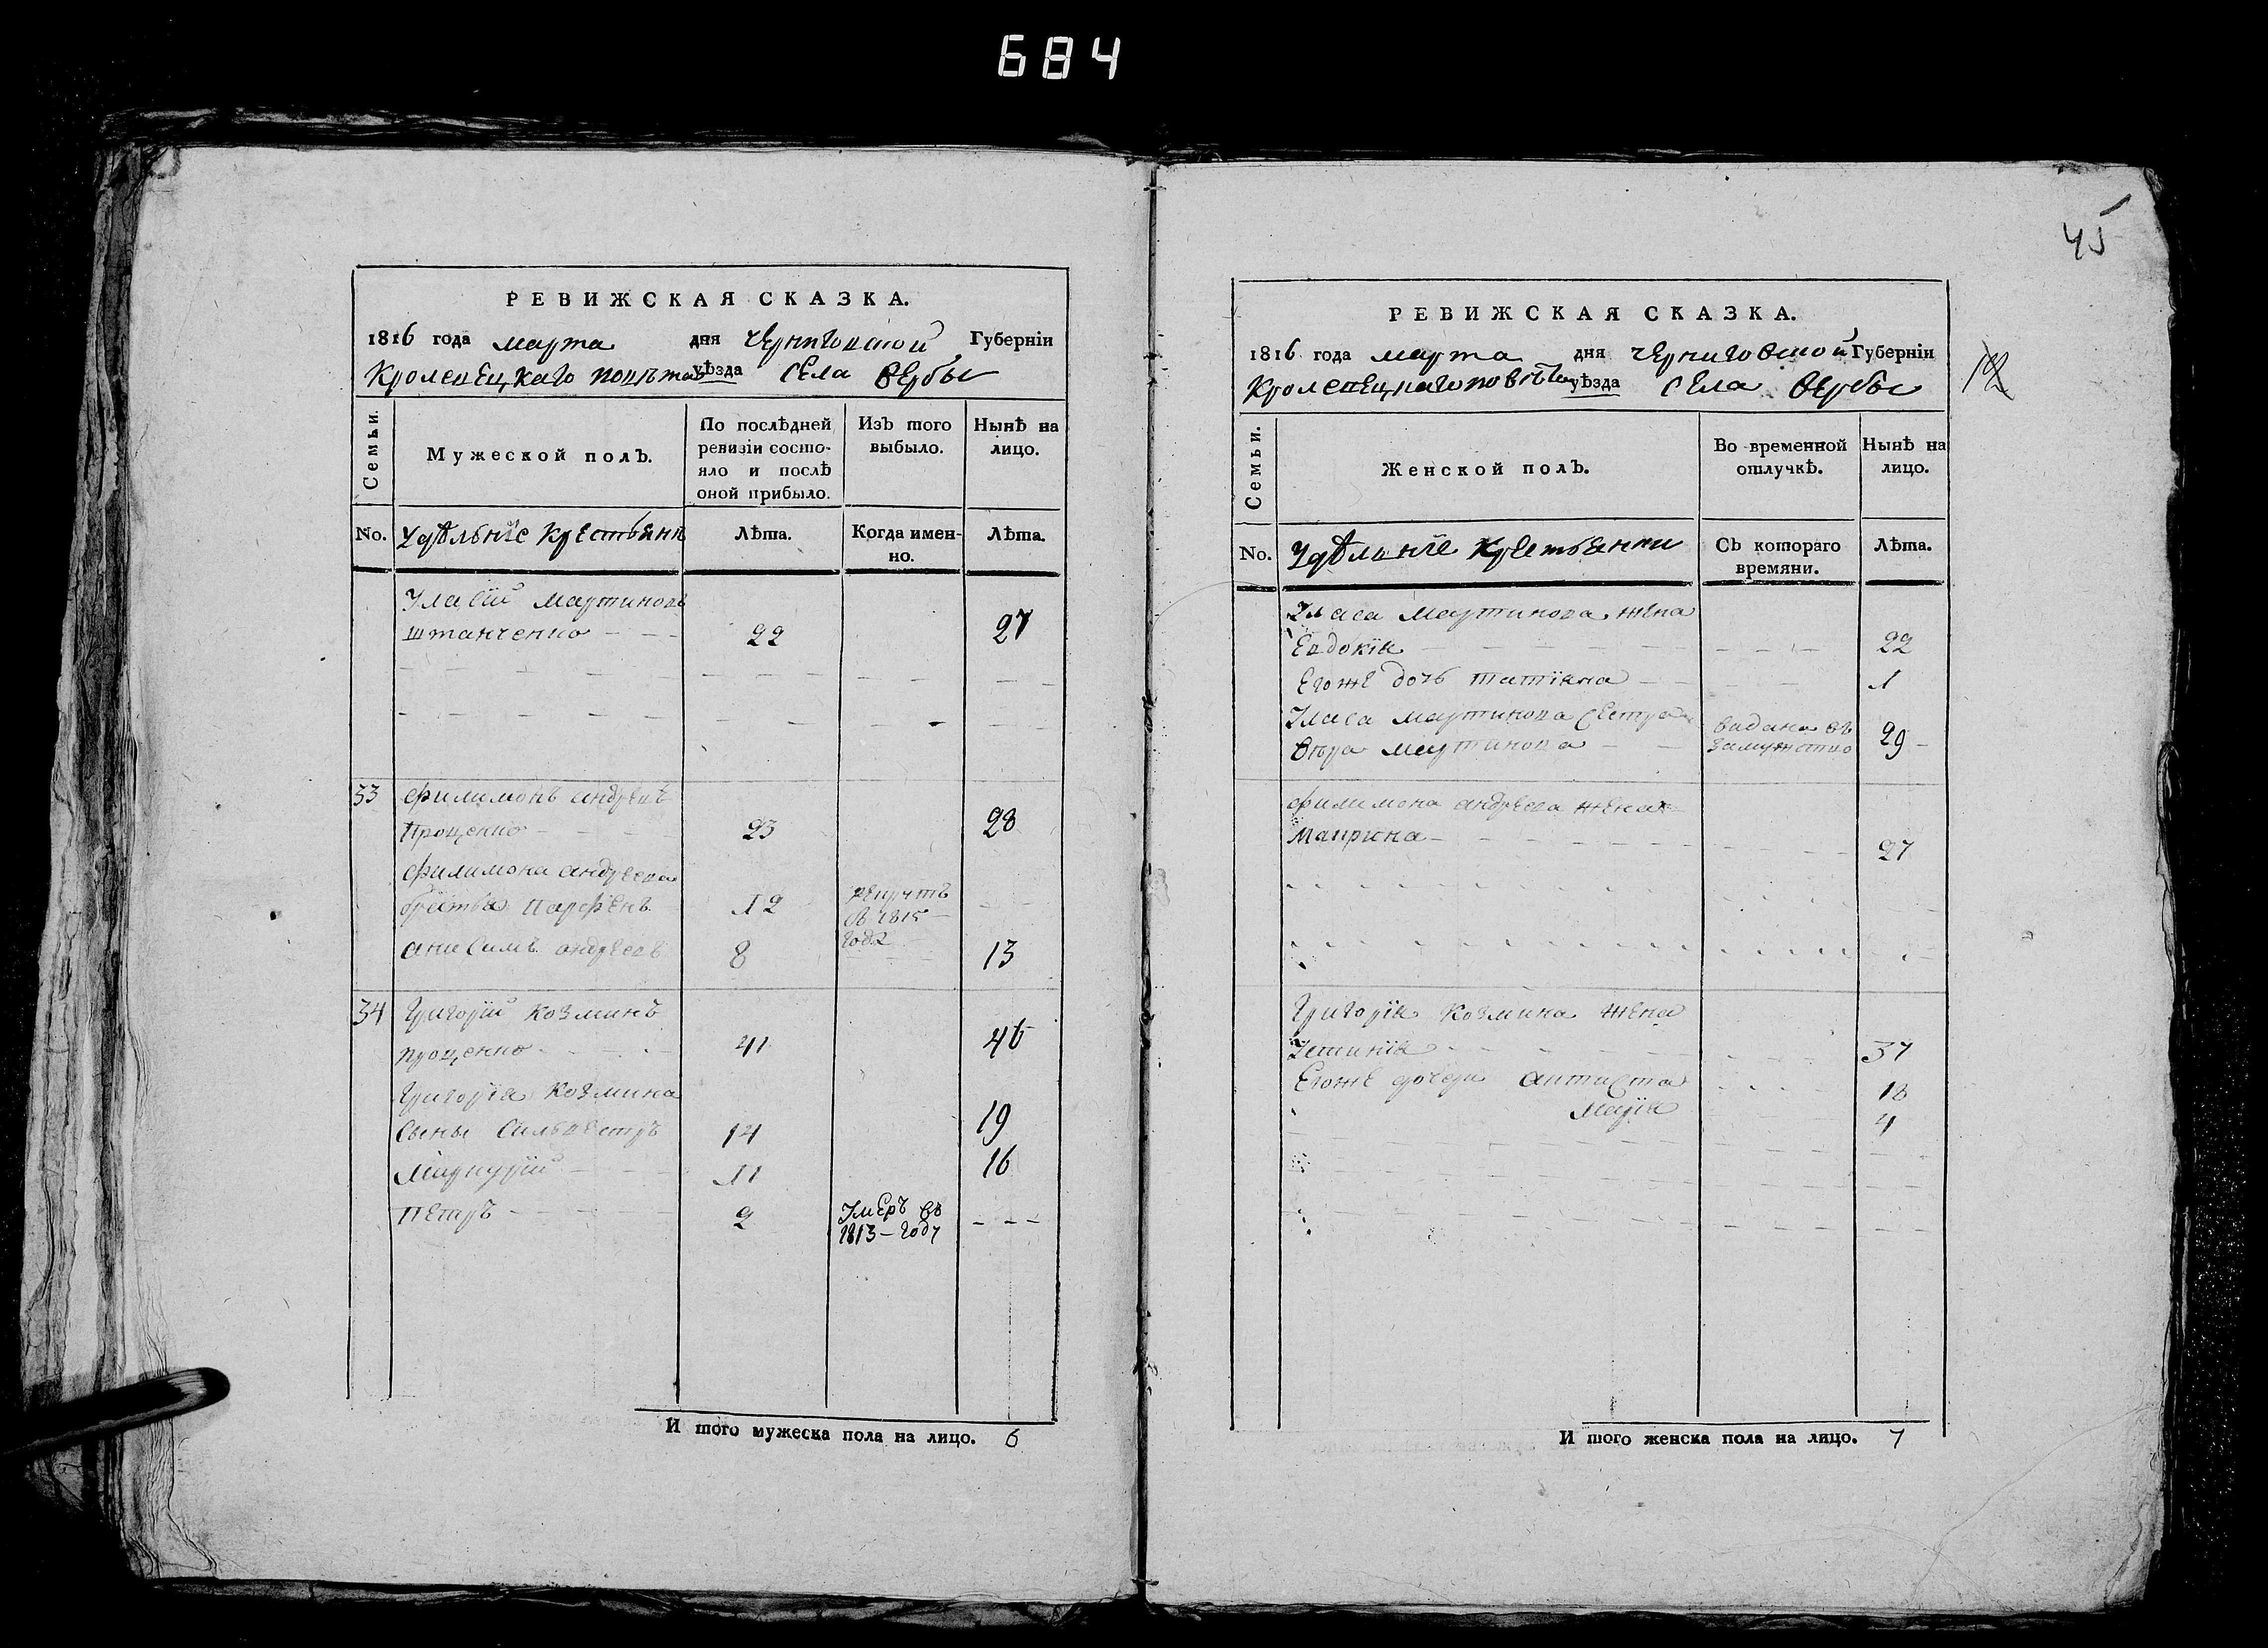 684
РЕВИЖСКАЯ СКАЗКА.
1816 года марта дня Черниговской Губерніи
Кролевецкаго повѣта уѣзда села Вербы
Семьи.
Мужеской полъ.
По послѣдней ревизіи состояло и послѣ оной прибыло.
Изъ того выбыло.
Нынѣ на лицо.
No.
Удѣльніе Крестьяне
Лѣта.
Когда именно.
Лѣта.
Уласій Мартиновъ
Штанченко 22 27
33 Филимонъ Андреевъ
Проценко 23 28
Филимона Андреева
братья Парфенъ 12 рекрутъ въ 1815 году
Анисимъ Андреевъ 8 13
34 Григорій Козминъ
Проценко 41 46
Григорія Козмина
сыны Сильвестръ 14 19
Маркурій 11 16
Петръ 2 Умеръ въ 1813 – году
И того мужеска пола на лицо. 6
45
РЕВИЖСКАЯ СКАЗКА.
1816 года марта дня Черниговской Губерніи
Кролевецкаго повѣта уѣзда села Вербы
12
Семьи.
Женской полъ.
Во временной отлучкѣ.
Нынѣ на лицо.
No.
Удѣлніе Крестьянки
Съ котораго времяни.
Лѣта.
Уласа Мартинова жена
Евдокія 22
Егоже дочь Татіяна 1
Уласа Мартинова сестра
Вѣра Мартинова видана въ замужство 29
Филимона Андреева жена
Маирина 27
Григорія Козмина жена
Устинія 37
Егоже дочери Антиста 18
Марія 4
И того женска пола на лицо. 7